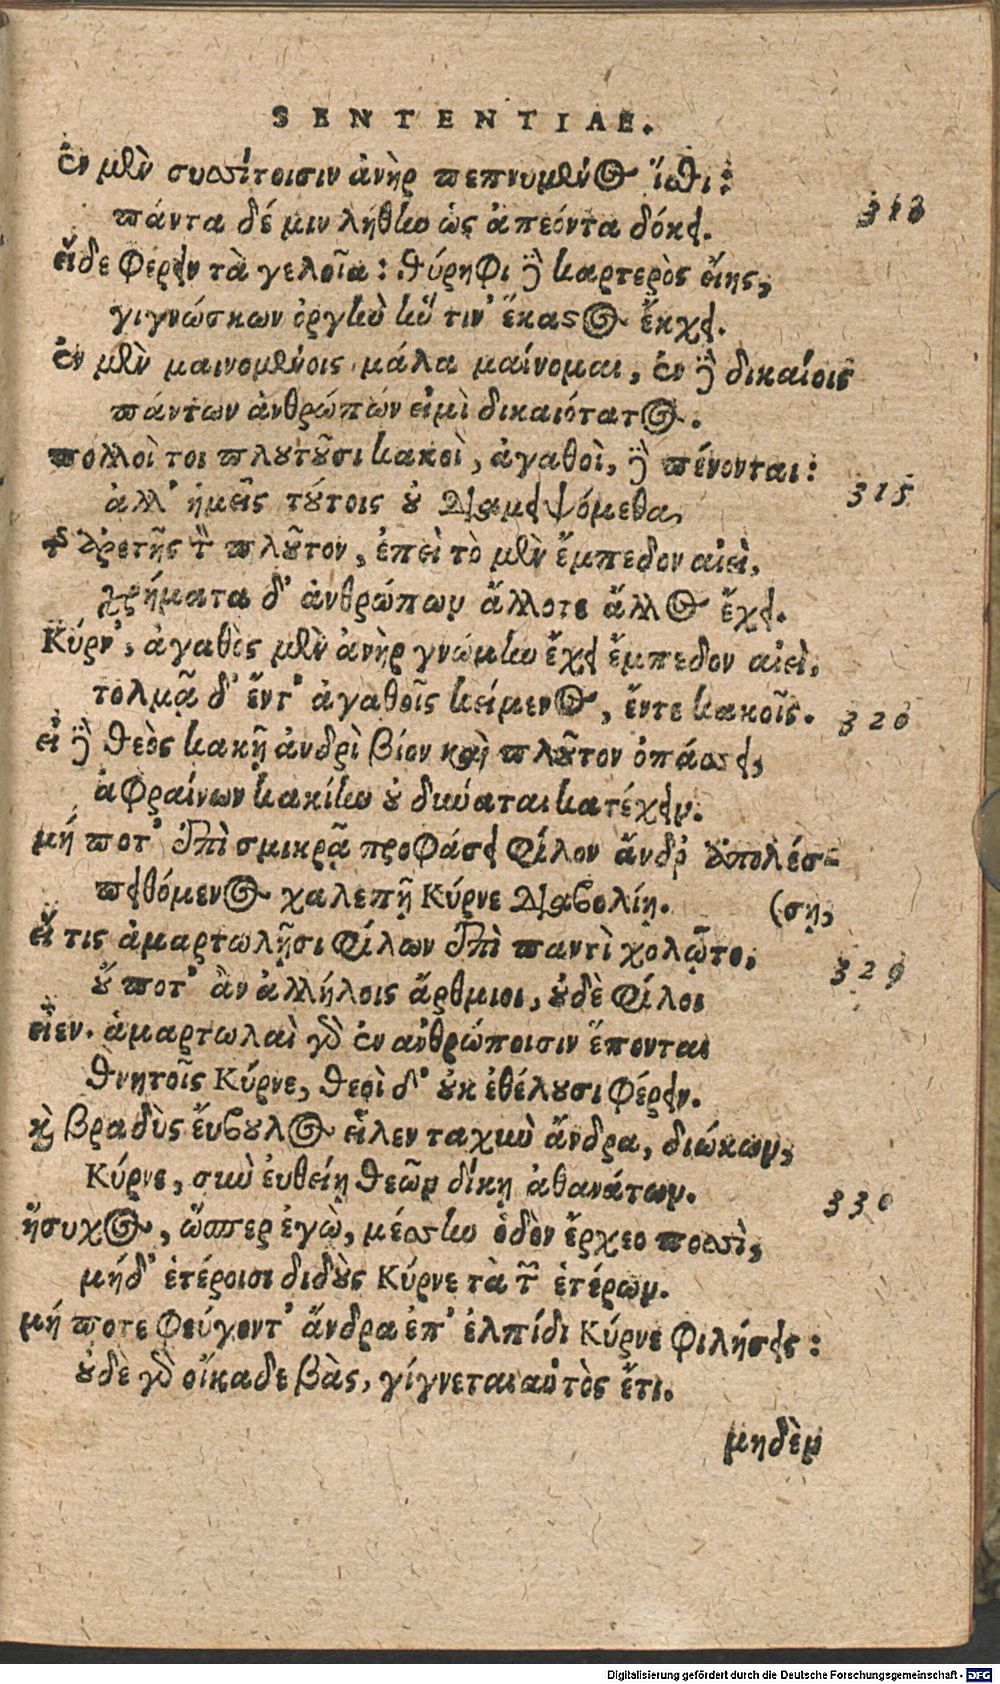 SENTENTIAE.
ἐν μὲν συσσίτοισιν ἀνὴρ πεπνυμένος ἴσθι:
πάντα δέ μιν λήθην ὡς ἀπεόντα δόκει. 313
εἴδε φέρειν τὰ γελοῖα: θύρηφι δὲ καρτερὸς εἴης,
γιγνώσκων ὀργὴν ἥν τιν' ἕκαστος ἔκχει.
ἐν μὲν μαινομένοις μάλα μαίνομαι, ἐν δὲ δικαίοις
πάντων ἀνθρώπων εἰμὶ δικαιότατος.
πολλοὶ τοι πλουτοῦσι κακοὶ, ἀγαθοὶ, δὲ πένονται:
ἀλλ' ἡμεῖς τούτοις οὐ διαμειψόμεθα 315
τῆς ἀρετῆς τὸν πλοῦτον, ἐπεὶ τὸ μὲν ἔμπεδον αἰεὶ,
χρήματα δ' ἀνθρώπων ἄλλοτε ἄλλος ἔχει.
Κύρν', ἀγαθὸς μὲν ἀνὴρ γνώμην ἔχει ἔμπεδον αἰεὶ,
τολμᾷ δ' ἔντ' ἀγαθοῖς κείμενος, ἔντε κακοῖς. 320
εἰ δὲ θεὸς κακῇ ἀνδρὶ βίον καὶ πλοῦτον ὀπάσσει,
ἀφραίνων κακίην οὐ δύναται κατέχειν.
μή ποτ' ἐπὶ σμικρᾷ προφάσει φίλον ἄνδρ' ἀπολέσ-
πειθόμενος χαλεπῇ Κύρνε διαβολίῃ. (σῃ,
εἴ τις ἁμαρτωλῇσι φίλων ἐπὶ παντὶ χολῷτο, 325
οὔ ποτ' ἂν ἀλλήλοις ἄρθμιοι, οὐδὲ φίλοι
εἶεν. ἁμαρτωλαὶ γὰρ ἐν ἀνθρώποισιν ἕπονται
θνητοῖς Κύρνε, θεοὶ δ' οὐκ ἐθέλουσι φέρειν.
καὶ βραδὺς εὔβουλος εἷλεν ταχὺν ἄνδρα, διώκων,
Κύρνε, σὺν εὐθείῃ θεῶν δίκῃ ἀθανάτων. 330
ἥσυχος, ὥσπερ ἐγὼ, μέσσην ὁδὸν ἔρχεο ποσσὶ,
μήδ' ἑτέροισι διδοὺς Κύρνε τὰ τῶν ἑτέρων.
μή ποτε φεύγοντ' ἄνδρα ἐπ' ἐλπίδι Κύρνε φιλήσεις:
οὐδὲ γὰρ οἴκαδε βὰς, γίγνεται αὐτὸς ἔτι.
μηδὲν
Digitalisierung gefördert durch die Deutsche Forschungsgemeinschaft - DFG